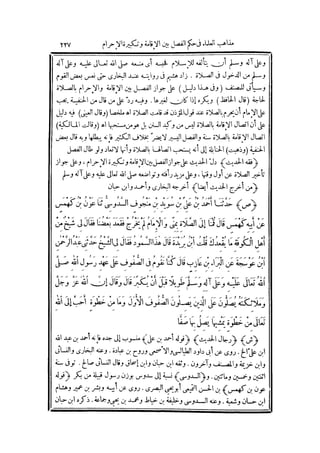 مذاهب العلماء في حكم الفصل بين الإقامة وتكبيرة الإحرام ٢٢٧
وعلى آله وسلم أن يتألفه للإسلام فحبسه أى منعه صلى الله تعالى عليه وعلى آله
وسلم من الدخول فى الصلاة. زاد هشيم فى روايته عند البخارى حتى نعس بعض القوم
وسيأتى للمصنف (وفى هذا دليل) على جواز الفصل بين الإقامة والإحرام بالصلاة
لحاجة (قال الحافظ) ويكره إذا كان لغيرها. وفيه رد على من قال من الحنفية يجب
على الإمام أن يحرم بالصلاة عند قول المؤذن قد قامت الصلاة اهـ ملخصا (وقال العينى) فيه دليل
على أن اتصال الإقامة بالصلاة ليس من وكيد السنن بل هو من مستحبها اهـ (وقالت المالكية)
اتصال الإقامة بالصلاة سنة والفصل اليسير لا يضر بخلاف الكثير فإنه يبطلها وبه قال بعض
الحنفية (وذهبت) الحنابلة إلى أنه يستحب اتصالها بالصلاة وأنها لا تعاد ولو طال الفصل
(فقه الحديث) دل الحديث على جواز الفصل بين الإقامة وتكبيرة الإحرام. وعلى جواز
تأخير الصلاة عن أول وقتها. وعلى مزيد رأفته وتواضعه صلى الله تعالى عليه وعلى آله وسلم
(من أخرج الحديث أيضا) أخرجه البخارى وأحمد وابن حبان
(ص) حدثنا أحمد بن على بن سويد بن منجوف السدوسى ثنا عون بن كهمس
عن أبيه كهمس قال قمنا إلى الصلاة بمنى والإمام لم يخرج فقعد بعضنا فقال لى شيخ من
أهل الكوفة ما يقعدك قلت ابن بريدة قال هذا السمود فقال لى الشيخ حدثنى عبد الرحمن
ابن عوسجة عن البراء بن عازب قال كنا نقوم فى الصفوف على عهد رسول الله صلى
الله تعالى عليه وعلى آله وسلم طويلا قبل أن يكبر قال وقال إن الله عز وجل
وملائكته يصلون على الذين يصلون الصفوف الأول وما من خطوة أحب إلى الله
تعالى من خطوة يمشيها يصل بها صفا
(ش) (رجال الحديث) (قوله أحمد بن على) منسوب إلى جده فإنه أحمد بن عبد الله
ابن على الخ. روى عن أبى داود الطيالسى والأصمعى وروح بن عبادة. وعنه البخارى والنسائى
وابن خزيمة والمصنف وآخرون. وثقه ابن حبان وابن إسحاق وقال النسائى صالح. توفى سنة
اثنتين وخمسين ومائتين. و(السدوسى) نسبة إلى سدوس بوزن رسول قبيلة من بكر (قوله
عون بن كهمس) بن الحسن التميمى أبو يحيى البصرى. روى عن أبيه وبشر بن عمير وهشام
ابن حسان وشعبة. وعنه السدوسى وخليفة بن خياط ومحمد بن يحيى وجماعة. ذكره ابن حبان